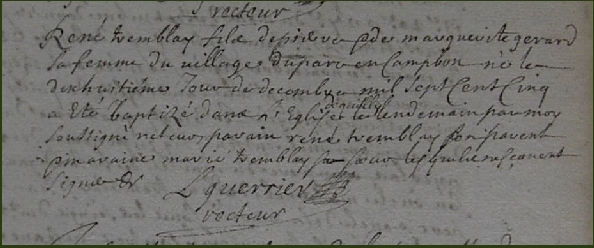 recteur
René tremblay fils de pierre & de marguerite gerard
sa femme du village duparc en Campbon né le
dixhuitiéme Jour de decembre mil sept Cent Cinq
a Eté baptizé dans l'Eglise le lendemain par moy
soussigné recteur, parain rené tremblay son parent
& maraine marie tremblay sa sœur lesquels ne scavent
signer
L guerrier
recteur